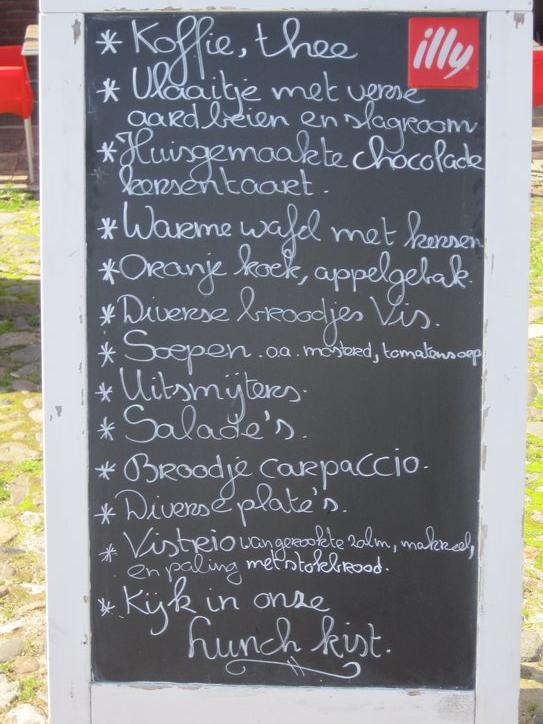 illy
* Koffie, thee
* Vlaaitje met verse
aardbeien en slagroom
* Huisgemaakte chocolade
kersentaart.
* Warme wafel met kersen
* Oranje koek, appelgebak.
* Diverse broodjes Vis.
* Soepen. o.a. mosterd, tomatensoep
* Uitsmijters.
* Salade's.
* Broodje carpaccio.
* Diverse plate's.
* Vistrio van gerookte zalm, makreel,
en paling met stokbrood.
* Kijk in onze
lunch kist.